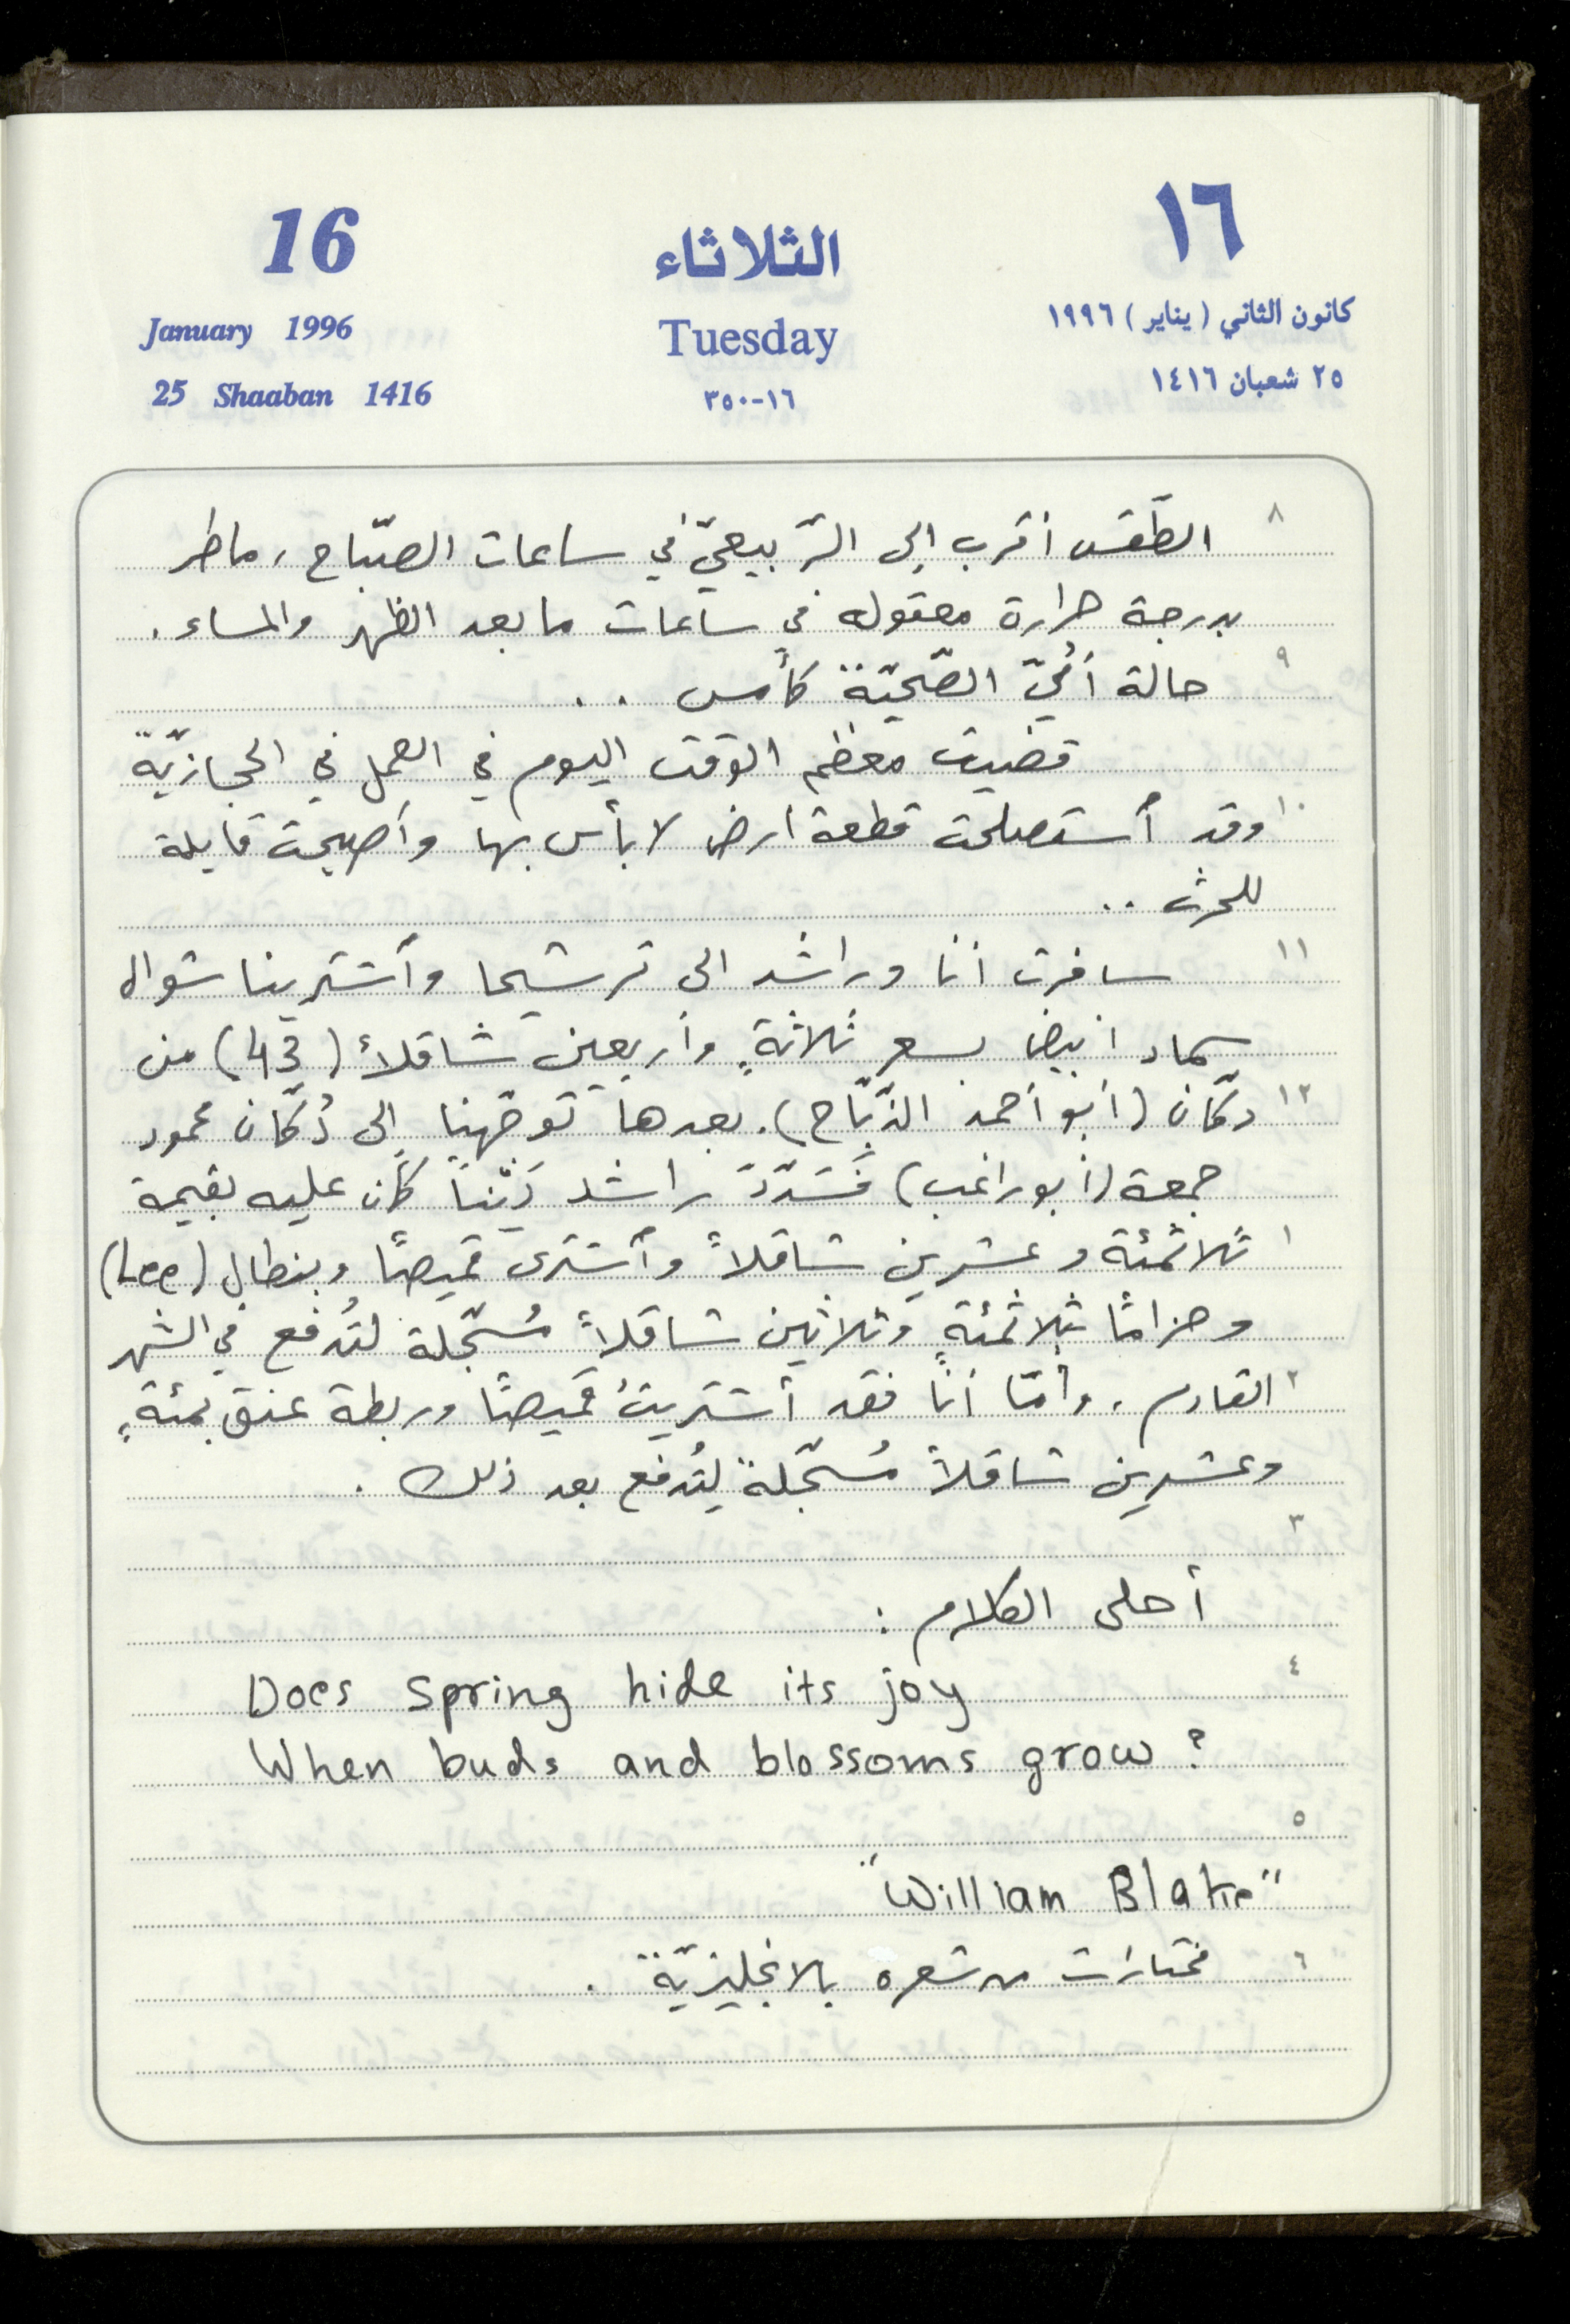 16 الثلاثاء ١٦
January 1996 Tuesday كانون الثاني (يناير) ١٩٩٦
25 Shaaban 1416 ١٦-٣٥٠ ٢٥ شعبان ١٤١٦
٨ الطّقس أقرب إلى الرّبيعيّ في ساعات الصّباح، ماطر
بدرجة حرارة معقوله في ساعات ما بعد الظهر والمساء.
٩ حالة أُمّيّ الصّحيّة كأمس ..
قضيت معظم الوقت اليوم في العمل في الحجازيّة
١٠ وقد أستصلحت قطعة أرض لا بأس بها وأصبحت قابلة
للحرث ..
١١ سافرت أنا وراشد الى ترشيحا وأشترينا شوال
سماد أبيض بسعر ثلاثةٍ وأربعين شاقلاً (43) من
١٢ دكّان (أبو أحمد الدّبّاح). بعدها توجّهنا إلى دُكّان محمود
جمعة (أبو راغب) فَسَدّدَ راشد دَيْناً كان عليه بقيمة
١ ثلاثمئة وعشرين شاقلاً وأشترى قميصًا وبنطال (Lee)
وحزامًا بثلاثمئةٍ وثلاثين شاقلاً مُسجّلة لتُدفع في الشهر
٢ القادم، وأمّا أنا فقد أشتريتُ قميصًا وربطة عنق بمئةٍ
وعشرين شاقلاً مُسجّلة لتُدفع بعد ذلك.
٣
أحلى الكلام :
٤ Does spring hide its joy
When buds and blossoms grow?
٥
"William Blake"
٦ مختارات من شعره بالانجليزيّة.